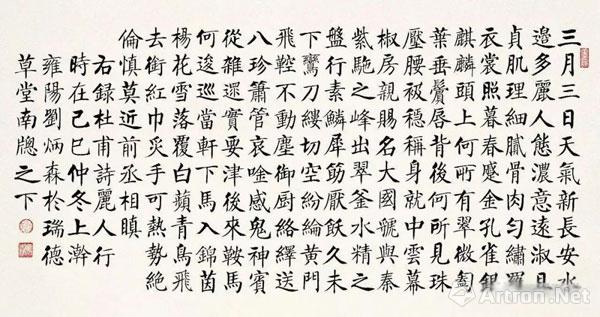 三月三日天氣新長安水
邉多麗人態濃意遠淑且
貞肌理細膩骨肉匀繡羅
衣裳照暮春蹙金孔雀銀
麒麟頭上何所有翠微㔩
葉垂鬢唇背後何所見珠
壓腰衱穩稱身就中雲幕
椒房親賜名大國虢與秦
紫駞之峰出翠釜水精之
盤行素鱗犀筯厭飫久未
下鸞刀縷切空紛綸黃門
飛鞚不動塵御厨絡繹送
八珍簫管哀唫感鬼神賓
從雜遝實要津後來鞍馬
何逡巡當軒下馬入錦茵
楊花雪落覆白蘋青鳥飛
去銜紅巾炙手可熱勢絶
倫慎莫近前丞相瞋
右録杜甫詩麗人行
時在己巳仲冬上澣
雍陽劉炳森於瑞德
草堂南牕之下
Artron.Net